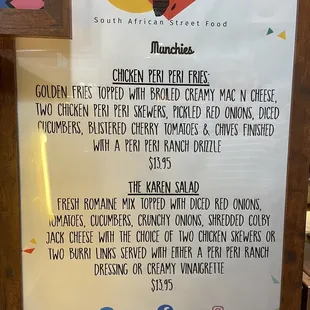 South African Street Food
Munchies
CHICKEN PERI PERI FRIES:
GOLDEN FRIES TOPPED WITH BROILED CREAMY MAC N CHEESE,
TWO CHICKEN PERI PERI SKEWERS, PICKLED RED ONIONS, DICED
CUCUMBERS, BLISTERED CHERRY TOMATOES & CHIVES FINISHED
WITH A PERI PERI RANCH DRIZZLE
$13.95
THE KAREN SALAD
FRESH ROMAINE MIX TOPPED WITH DICED RED ONIONS,
TOMATOES, CUCUMBERS, CRUNCHY ONIONS, SHREDDED COLBY
JACK CHEESE WITH THE CHOICE OF TWO CHICKEN SKEWERS OR
TWO BURRI LINKS SERVED WITH EITHER A PERI PERI RANCH
DRESSING OR CREAMY VINAIGRETTE
$13.95